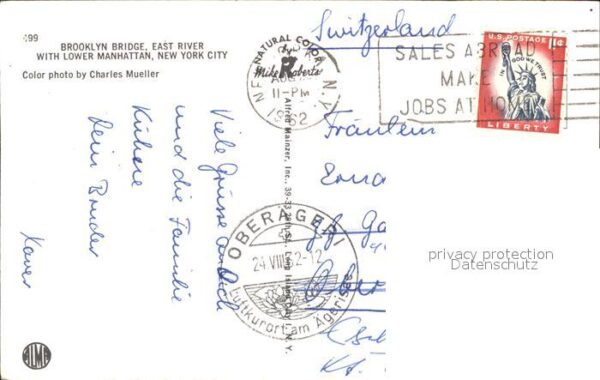 499
BROOKLYN BRIDGE, EAST RIVER
WITH LOWER MANHATTAN, NEW YORK CITY
Color photo by Charles Mueller
NATURAL COLOR
by
Mike Roberts
Alfred Mainzer, Inc., 39-33 29th St., Long Island City 1, N. Y.
NEW N.Y.
AUG
11-PM
1962
SALES ABROAD
MAKE
JOBS AT HOME
U.S. POSTAGE
11¢
IN GOD WE TRUST
LIBERTY
Switzerland
Fräulein
Erna
Ober
Kt.
OBERÄGERI
24.VIII.62-12
Luftkurort am Ägerisee
Viele Grüsse an Dich
und die Familie
Dein Bruder
Xaver
privacy protection
Datenschutz